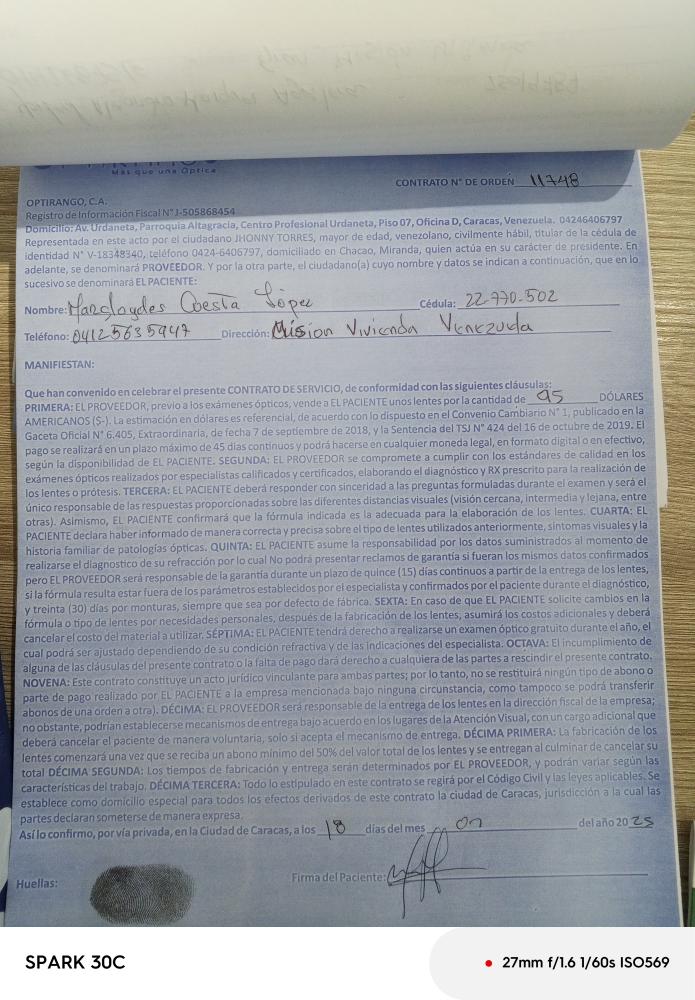 Más que una Óptica
CONTRATO N° DE ORDEN 11748
OPTIRANGO, C.A.
Registro de Información Fiscal N° J-505868454
Domicilio: Av. Urdaneta, Parroquia Altagracia, Centro Profesional Urdaneta, Piso 07, Oficina D, Caracas, Venezuela. 04246406797
Representada en este acto por el ciudadano JHONNY TORRES, mayor de edad, venezolano, civilmente hábil, titular de la cédula de
identidad N° V-18348340, teléfono 0424-6406797, domiciliado en Chacao, Miranda, quien actúa en su carácter de presidente. En
adelante, se denominará PROVEEDOR. Y por la otra parte, el ciudadano(a) cuyo nombre y datos se indican a continuación, que en lo
sucesivo se denominará EL PACIENTE:
Nombre: Cuesta López Cédula: 22-770-502
Teléfono: 04125635947 Dirección: Misión Vivienda Venezuela
MANIFIESTAN:
Que han convenido en celebrar el presente CONTRATO DE SERVICIO, de conformidad con las siguientes cláusulas:
PRIMERA: EL PROVEEDOR, previo a los exámenes ópticos, vende a EL PACIENTE unos lentes por la cantidad de 95 DÓLARES
AMERICANOS ($-). La estimación en dólares es referencial, de acuerdo con lo dispuesto en el Convenio Cambiario N° 1, publicado en la
Gaceta Oficial N° 6.405, Extraordinaria, de fecha 7 de septiembre de 2018, y la Sentencia del TSJ N° 424 del 16 de octubre de 2019. El
pago se realizará en un plazo máximo de 45 días continuos y podrá hacerse en cualquier moneda legal, en formato digital o en efectivo,
según la disponibilidad de EL PACIENTE. SEGUNDA: EL PROVEEDOR se compromete a cumplir con los estándares de calidad en los
exámenes ópticos realizados por especialistas calificados y certificados, elaborando el diagnóstico y RX prescrito para la realización de
los lentes o prótesis. TERCERA: EL PACIENTE deberá responder con sinceridad a las preguntas formuladas durante el examen y será el
único responsable de las respuestas proporcionadas sobre las diferentes distancias visuales (visión cercana, intermedia y lejana, entre
otras). Asimismo, EL PACIENTE confirmará que la fórmula indicada es la adecuada para la elaboración de los lentes. CUARTA: EL
PACIENTE declara haber informado de manera correcta y precisa sobre el tipo de lentes utilizados anteriormente, síntomas visuales y la
historia familiar de patologías ópticas. QUINTA: EL PACIENTE asume la responsabilidad por los datos suministrados al momento de
realizarse el diagnostico de su refracción por lo cual No podrá presentar reclamos de garantía si fueran los mismos datos confirmados
pero EL PROVEEDOR será responsable de la garantía durante un plazo de quince (15) días continuos a partir de la entrega de los lentes,
si la fórmula resulta estar fuera de los parámetros establecidos por el especialista y confirmados por el paciente durante el diagnóstico,
y treinta (30) días por monturas, siempre que sea por defecto de fábrica. SEXTA: En caso de que EL PACIENTE solicite cambios en la
fórmula o tipo de lentes por necesidades personales, después de la fabricación de los lentes, asumirá los costos adicionales y deberá
cancelar el costo del material a utilizar. SÉPTIMA: EL PACIENTE tendrá derecho a realizarse un examen óptico gratuito durante el año, el
cual podrá ser ajustado dependiendo de su condición refractiva y de las indicaciones del especialista. OCTAVA: El incumplimiento de
alguna de las cláusulas del presente contrato o la falta de pago dará derecho a cualquiera de las partes a rescindir el presente contrato.
NOVENA: Este contrato constituye un acto jurídico vinculante para ambas partes; por lo tanto, no se restituirá ningún tipo de abono o
parte de pago realizado por EL PACIENTE a la empresa mencionada bajo ninguna circunstancia, como tampoco se podrá transferir
abonos de una orden a otra). DÉCIMA: EL PROVEEDOR será responsable de la entrega de los lentes en la dirección fiscal de la empresa;
no obstante, podrían establecerse mecanismos de entrega bajo acuerdo en los lugares de la Atención Visual, con un cargo adicional que
deberá cancelar el paciente de manera voluntaria, solo si acepta el mecanismo de entrega. DÉCIMA PRIMERA: La fabricación de los
lentes comenzará una vez que se reciba un abono mínimo del 50% del valor total de los lentes y se entregan al culminar de cancelar su
total DÉCIMA SEGUNDA: Los tiempos de fabricación y entrega serán determinados por EL PROVEEDOR, y podrán variar según las
características del trabajo. DÉCIMA TERCERA: Todo lo estipulado en este contrato se regirá por el Código Civil y las leyes aplicables. Se
establece como domicilio especial para todos los efectos derivados de este contrato la ciudad de Caracas, jurisdicción a la cual las
partes declaran someterse de manera expresa.
Así lo confirmo, por vía privada, en la Ciudad de Caracas, a los 18 días del mes 07 del año 20 25
Huellas: Firma del Paciente:
SPARK 30C 27mm f/1.6 1/60s ISO569